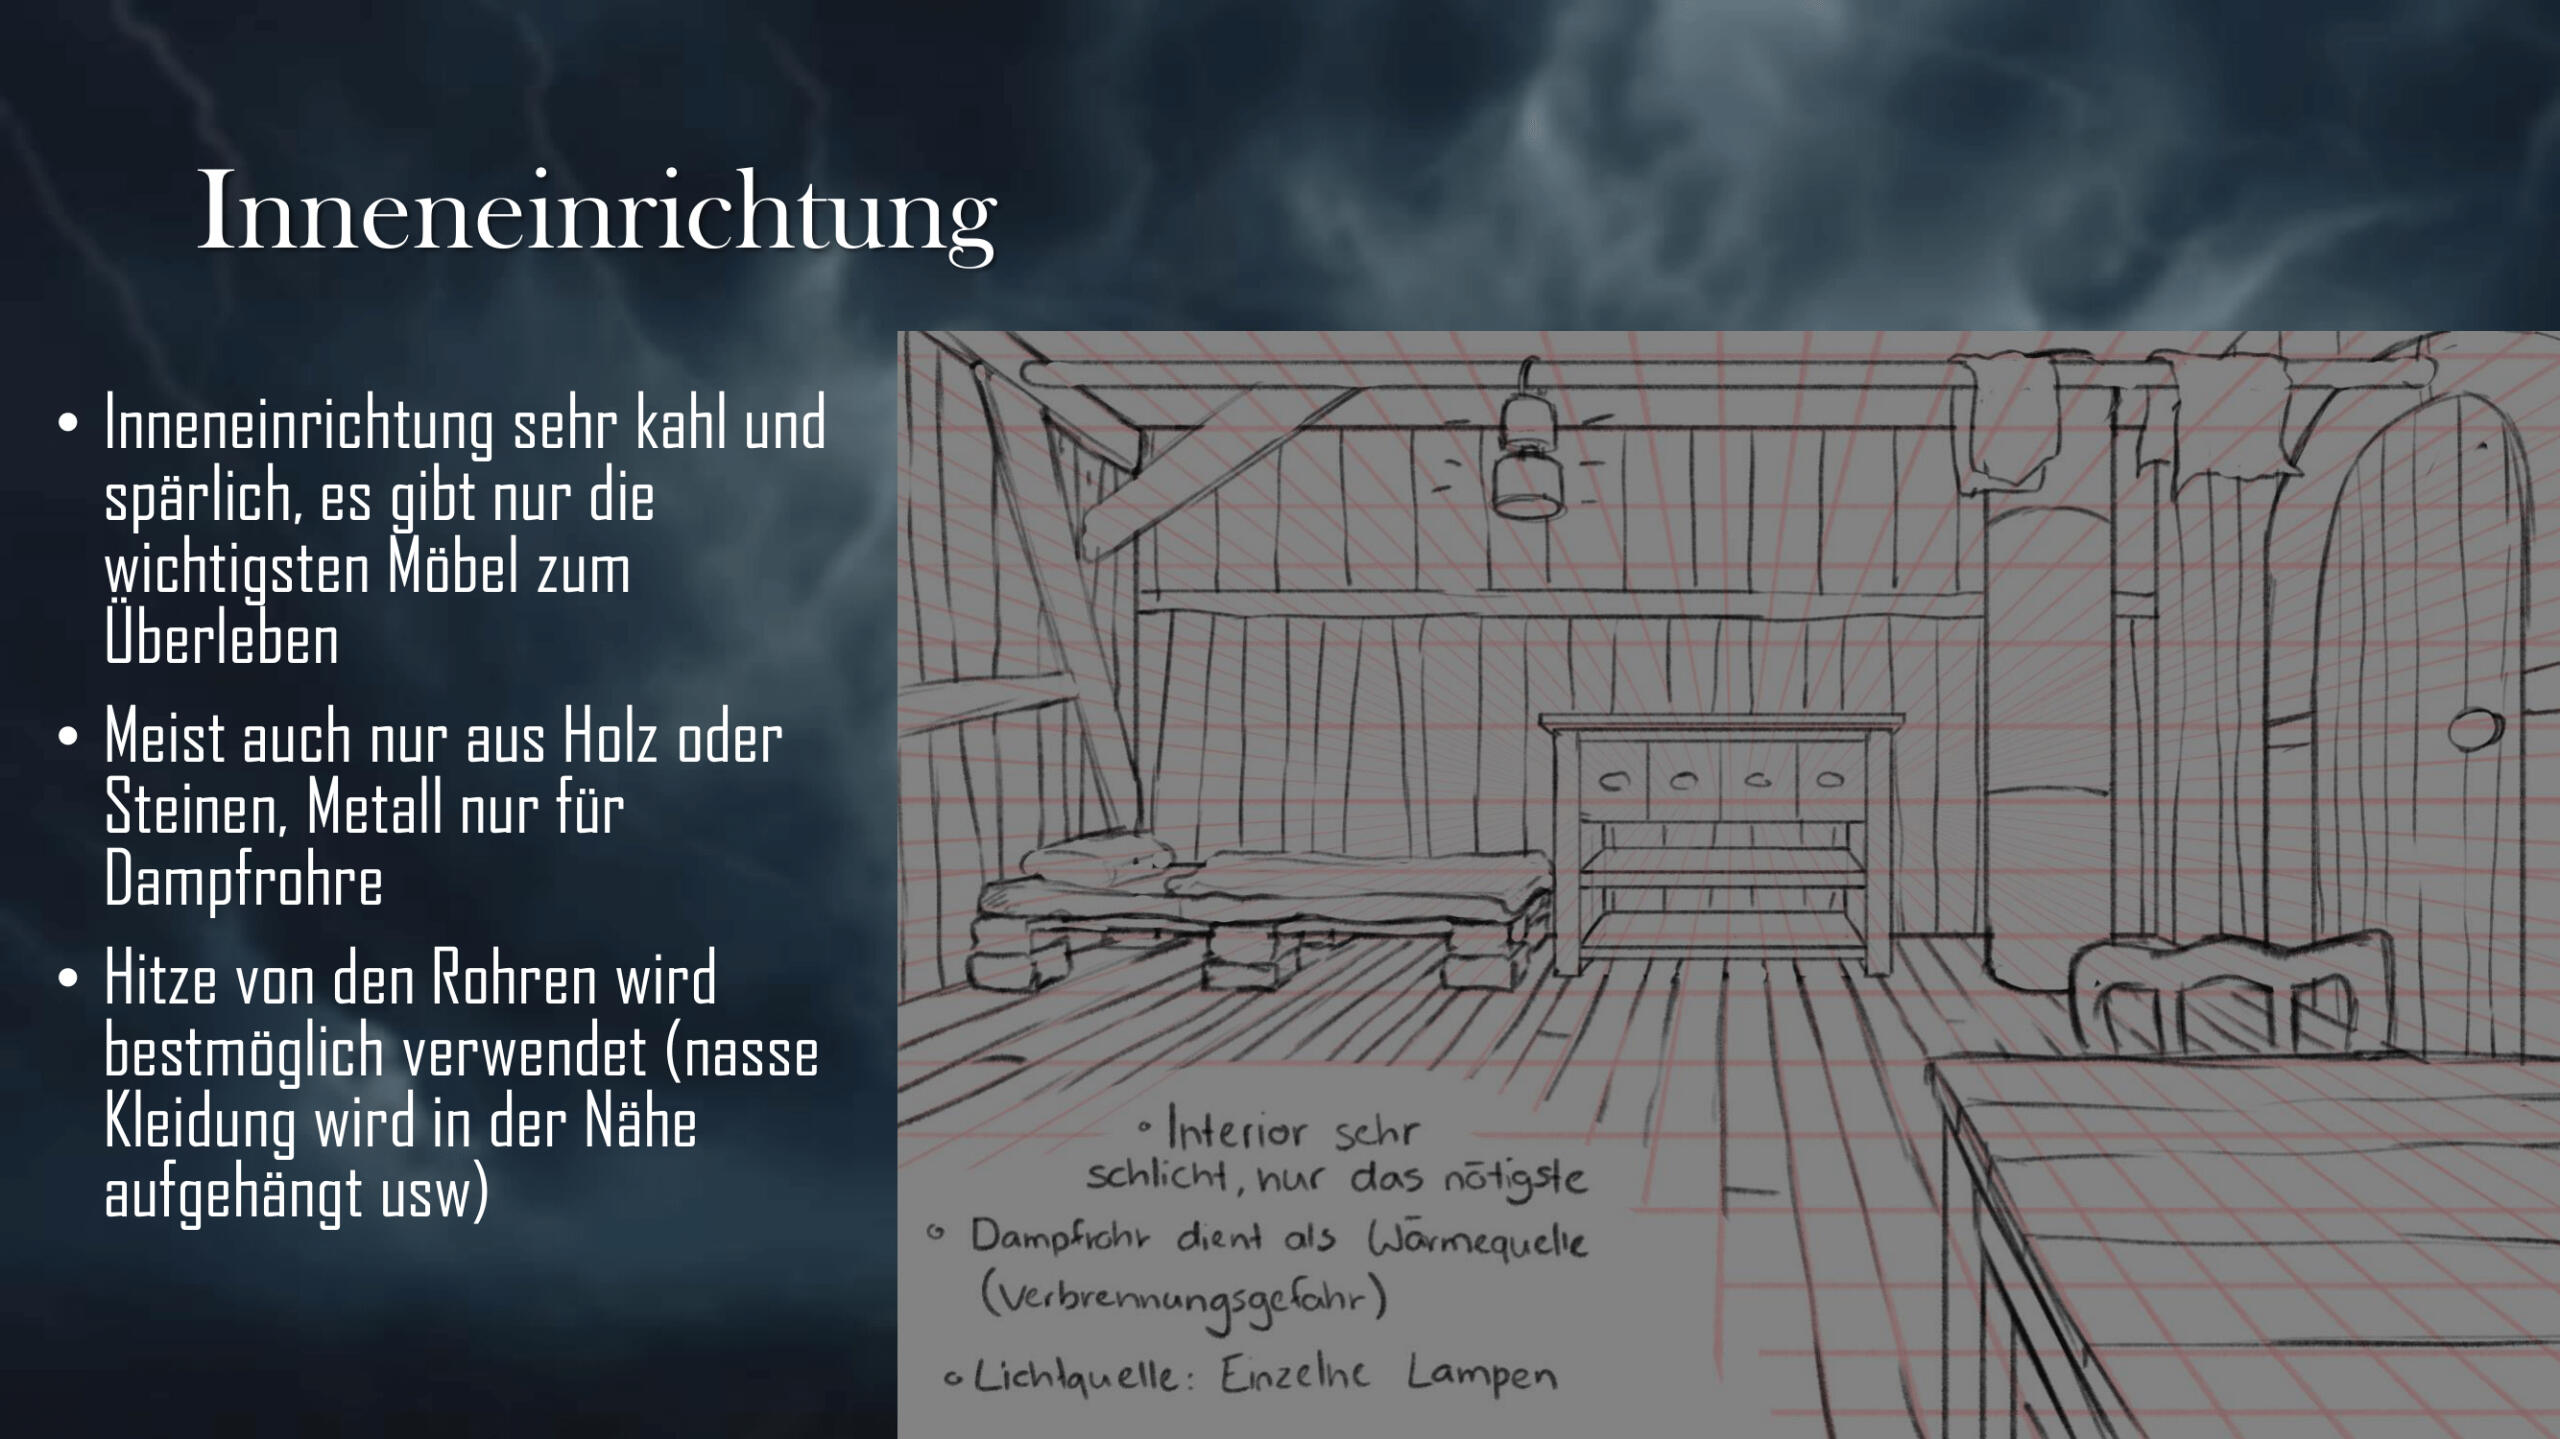 Inneneinrichtung
• Inneneinrichtung sehr kahl und
spärlich, es gibt nur die
wichtigsten Möbel zum
Überleben
• Meist auch nur aus Holz oder
Steinen, Metall nur für
Dampfrohre
• Hitze von den Rohren wird
bestmöglich verwendet (nasse
Kleidung wird in der Nähe
aufgehängt usw)
• Interior sehr
schlicht, nur das nötigste
• Dampfrohr dient als Wärmequelle
(Verbrennungsgefahr)
• Lichtquelle: Einzelne Lampen